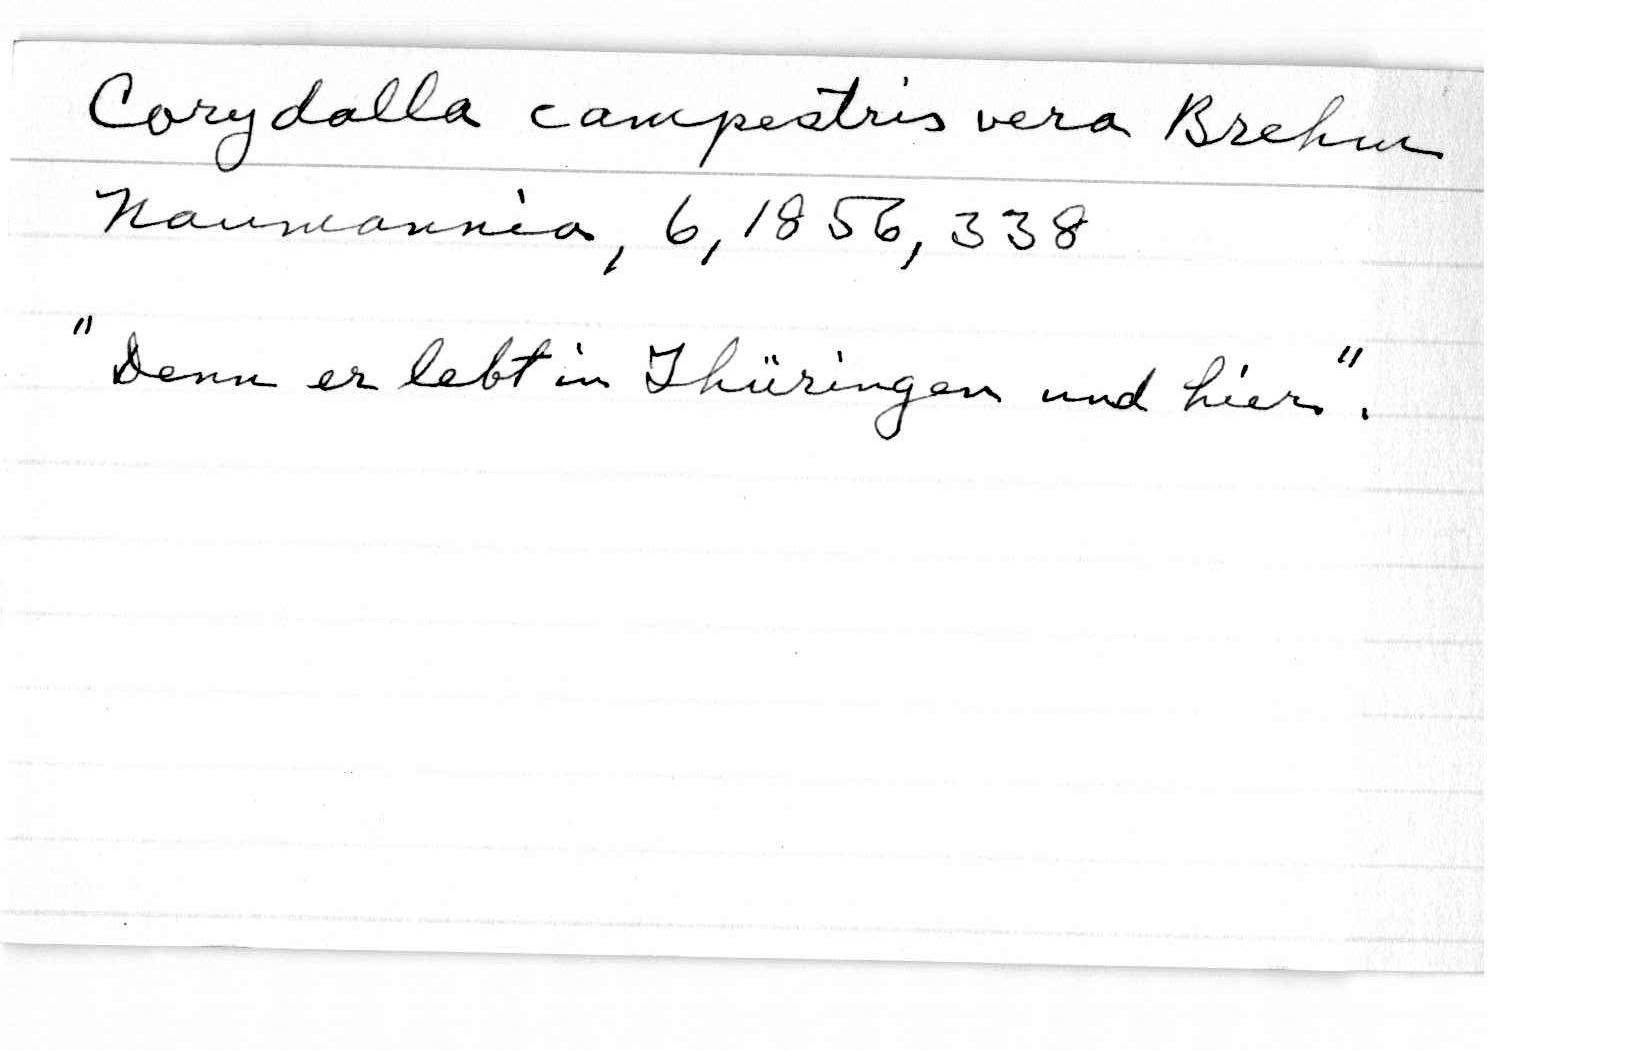 Corydalla campestris vera Brehm
Naumannia, 6, 1856, 338
"Denn er lebt in Thüringen und hier".